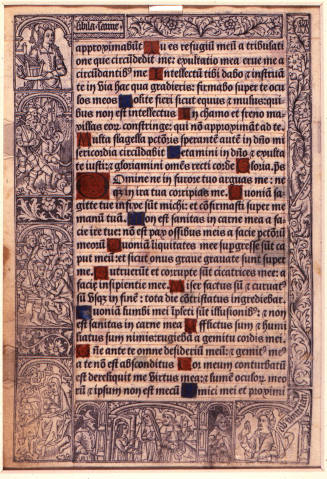 sibila samne
approximabūt Tu es refugiū meū a tribulati
one que circūdedit me: exultatio mea erue me a
circūdantib⁹ me Intellectū tibi dabo ⁊ instruā
te in via hac qua gradieris: firmabo super te ocu
los meos Nolite fieri sicut equus ⁊ mulus: qui
bus non est intellectus In chamo et freno ma
xillas eor̄ constringe: qui nō approximāt ad te
Multa flagella pctōris sperantē autē in dn̄o mi
sericordia circūdabit Letamini in dn̄o ⁊ exulta
te iusti: ⁊ gloriamini om̄es recti corde Gloria. ps
Domine ne in furore tuo arguas me: ne
qȝ in ira tua corripias me Quoniā sa
gitte tue infixe sūt michi: et cōfirmasti super me
manū tuā Non est sanitas in carne mea a fa
cie ire tue: nō est pax ossibus meis a facie pctōrū
meorū Quoniā iniquitates mee supgresse sūt ca
put meū: et sicut onus graue grauate sunt super
me Putruerūt et corrupte sūt cicatrices mee: a
facie insipientie mee Miser factus sū ⁊ curuat⁹
sū vsqȝ in finē: tota die cōtristatus ingrediebar
Quoniā lumbi mei īpleti sūt illusionib⁹: ⁊ non
est sanitas in carne mea Afflictus sum ⁊ humi
liatus sum nimis: rugiebā a gemitu cordis mei
Dn̄e ante te omne desideriū meū: ⁊ gemit⁹ me⁹
a te nō est absconditus Cor meum conturbatū
est dereliquit me virtus mea: ⁊ lumē oculor̄ meo
rū ⁊ ipsum non est mecū Amici mei et proximi